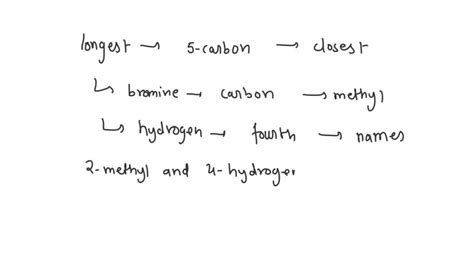 longest → 5-carbon → closest
↳ bromine → carbon → methyl
↳ hydrogen → fourth → names
2-methyl and 4-hydrogen